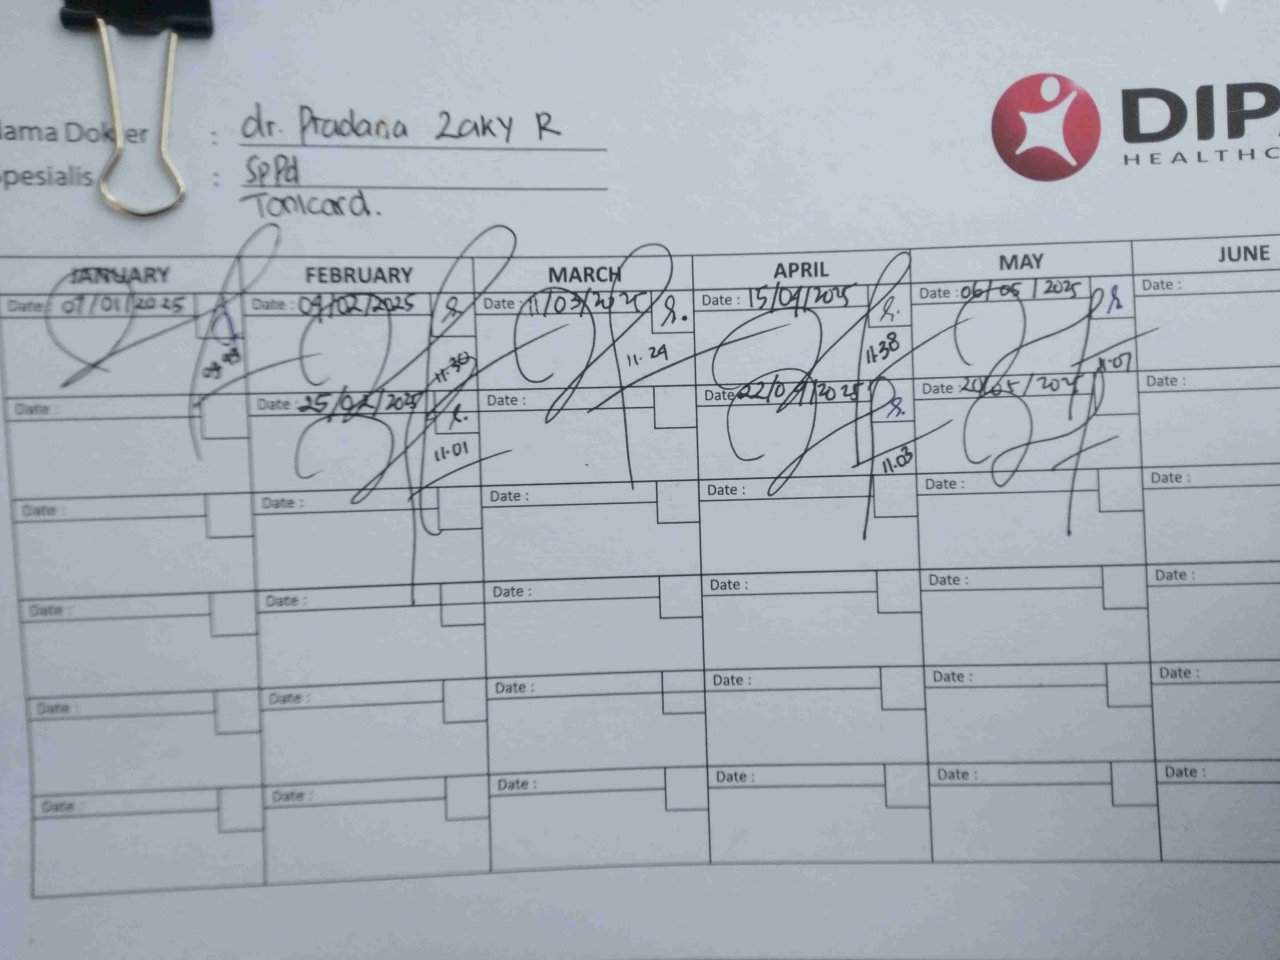 Nama Dokter : dr. Pradana Zaky R
Spesialis : SpPd
Tonicard.
DIPA
HEALTHC
JANUARY FEBRUARY MARCH APRIL MAY JUNE
Date : 07/01/2025 Date : 04/02/2025 Date : 11/03/2025 Date : 15/04/2025 Date : 06/05/2025 Date :
11.30 11.24 11.38 11.07
Date : Date : 25/02/2025 Date : Date : 22/04/2025 Date : 20/05/2025 Date :
11.01 11.03
Date : Date : Date : Date : Date : Date :
Date : Date : Date : Date : Date : Date :
Date : Date : Date : Date : Date : Date :
Date : Date : Date : Date : Date : Date :